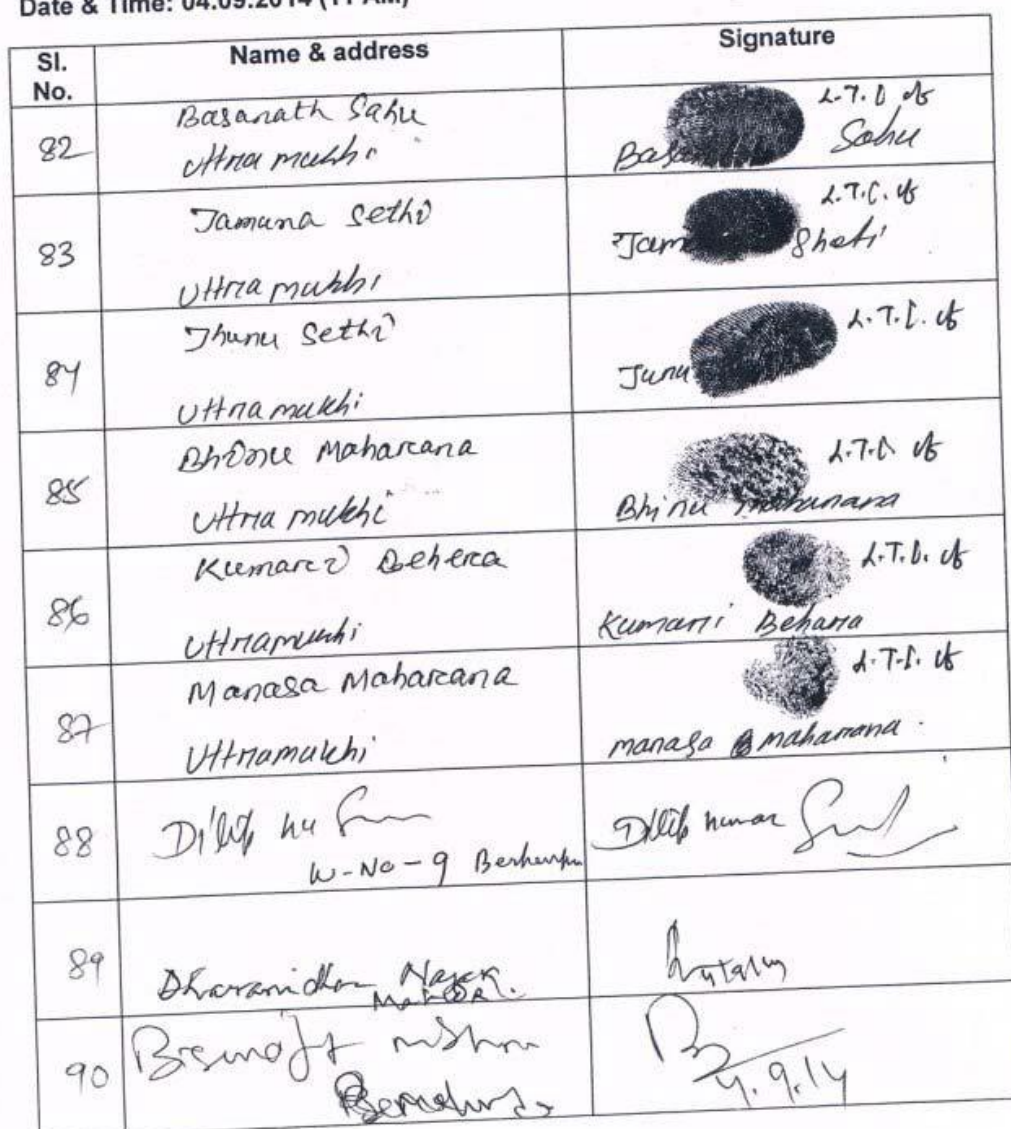 Date & Time: 04.09.2014 (11 AM)
Sl. No. Name & address Signature
82 Basanath Sahu
Uttra mukhi
L.T.I of
Basa Sahu
83 Jamuna Sethi
Uttra mukhi
L.T.I. of
Jam Sheti
84 Jhunu Sethi
Uttra mukhi
L.T.I. of
Junu
85 Bhinu Maharana
Uttra mukhi
L.T.I of
Bhinu maharana
86 Kumari Behera
Uttramukhi
L.T.I. of
Kumari Behara
87 Manasa Maharana
Uttramukhi
L.T.I. of
manasa maharana
88 Dilip ku
W-No-9 Berhampur
Dilip kumar
89 Dharanidhar Nayak
90
4.9.14